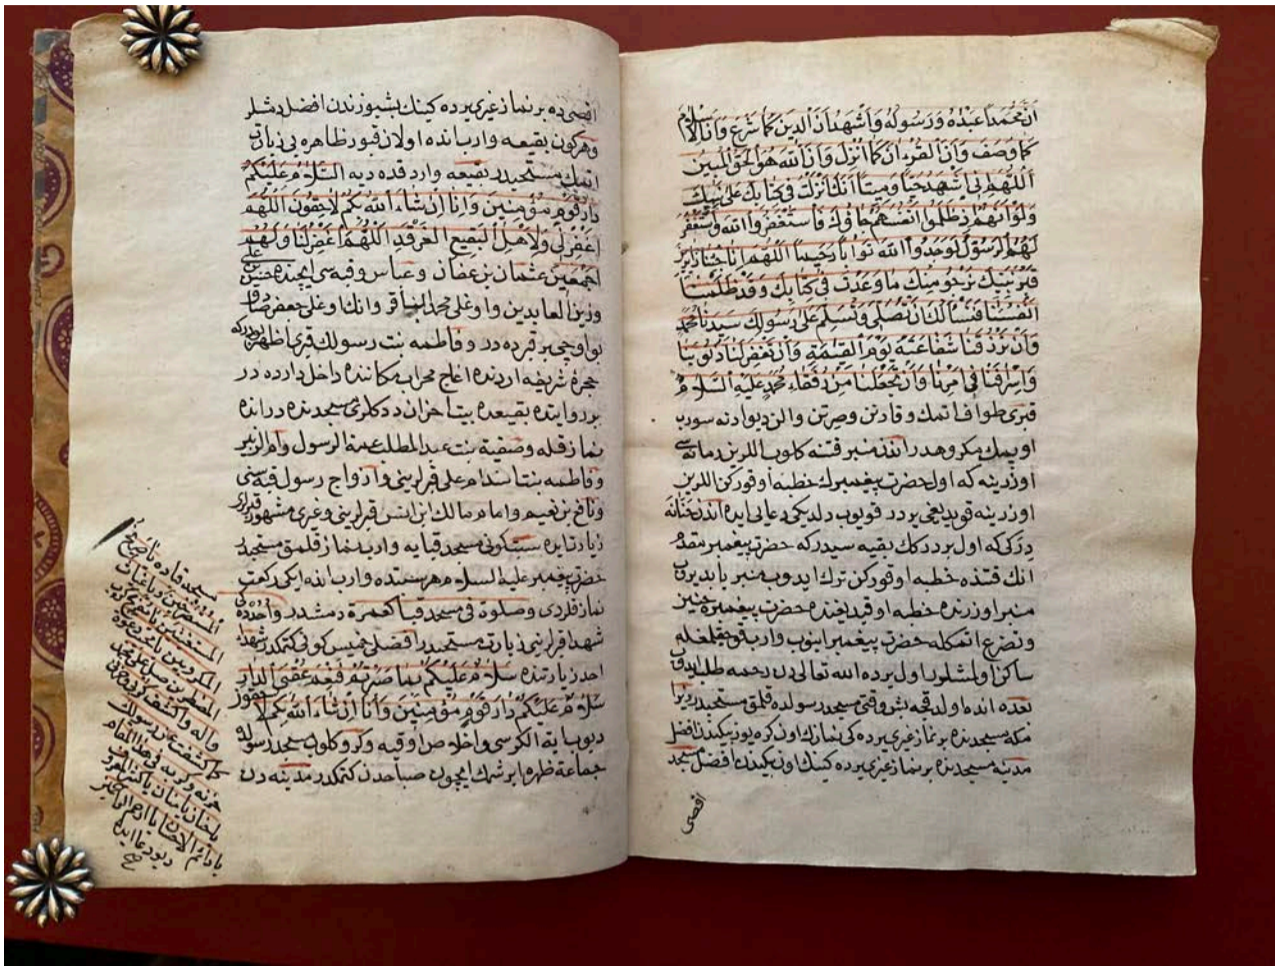 ان محمدا عبده ورسوله واشهد ان الدين كما شرع وان الاسلام
كما وصف وان القرءان كما انزل وان الله هو الحق المبين
اللهم اني اشهد حيا وميتا انك انزلت في كتابك على نبيك
ولو انهم اذ ظلموا انفسهم جاؤك فاستغفروا الله واستغفر
لهم الرسول لوجدوا الله توابا رحيما اللهم انا جئنا زائرين
قبر نبيك نرجو منك ما وعدت في كتابك وقد ظلمنا
انفسنا فنسألك ان تصلي وتسلم على رسولك سيدنا محمد
وان ترزقنا شفاعته يوم القيمة وان تغفر لنا ذنوبنا
واسرافنا في امرنا وان تجعلنا من رفقاء محمد عليه السلام
قبری طواف اتمك وقارنن وصرتن والن دیوارنه سورب
اوپمك مكروهدر اندن منبر قتنه كلوب اللرین رمانه سی
اوزرینه كه اول حضرت پیغمبرك خطبه اوقوركن اللرین
اوزرینه قویدیغی یردر قویوب دلدیكی دعایی ایده اندن حنانه
دركی كه اول بردركك بقیه سیدر كه حضرت پیغمبر مقدم
انك قتنده خطبه اوقوركن ترك ایدوب منبر یابدیروب
منبر اوزرنده خطبه اوقیدیغنده حضرت پیغمبره حنین
وتضرع اتمكله حضرت پیغمبر اینوب واروب قوجقلمغله
ساكن اولمشلردر اول یرده الله تعالی دن رحمه طلب ایدوب
بعده انده اولدقجه بش وقتی مسجد رسولده قلمق مستحبدر زیرا
مكه مسجدنده بر نماز غیری یرده كی نمازك اون كره یوز بیكندن افضل
مدینه مسجدنده بر نماز غیری یرده كینك اون بیكندن افضل مسجد
اقصی
اقصی ده بر نماز غیری یرده كینك بشیوزندن افضلدمشلر
وهركون بقیعه واروب انده اولان قبور ظاهره یی زیارت
اتمك مستحبدر بقیعه واردقده دیه السلام عليكم
دار قوم مؤمنين وانا ان شاء الله بكم لاحقون اللهم
اغفر لي ولاهل البقيع الغرقد اللهم اغفر لنا ولهم
اجمعين عثمان بن عفان وعباس وقبه سی ایچنده حسین بن علی
وزین العابدین واوغلی محمد الباقر وانك اوغلی جعفر صادق
بو اوچی بر قبرده در وفاطمه بنت رسولك قبری اظهر بودركه
حجرۀ شریفه اردنده اغاج محراب مكاننده داخل دارده در
بر روایتده بقیعده بیت احزان ددكلری مسجدنده در انده
نماز قله وصفیة بنت عبد المطلب عمة الرسول وام الزبیر
وفاطمه بنت اسد ام علی قبرلرینی وازواج رسول قبه سنی
ونافع بن نعیم وامام مالك ابن انس قبرلرینی وغیری مشهور قبرلری
زیارت ایده سبت كونی مسجد قبایه واروب نماز قلمق مستحبدر
حضرت پیغمبر علیه السلام هر سبتده واروب انده ایكی ركعت
نماز قلردی وصلوة في مسجد قبا كعمرة دمشدر واحدده كی
شهدا قبرلرینی زیارت مستحبدر افضلی خمیس كونی كتمكدر شهداء
احد زیارتنده سلام عليكم بما صبرتم فنعم عقبى الدار
سلام عليكم دار قوم مؤمنين وانا ان شاء الله بكم لاحقون
دیوب آیة الكرسی واخلاص اوقیه وكرو كلوب مسجد رسوله
جماعة ظهره ایرشمك ایچون صباحدن كتمكدر مدینه دن
مسجد قباده
المستصرخين ويا غياث
المستغيثين يا مفرج كرب
المكروبين يا مجيب دعوة
المضطرين صل على محمد
واله واكشف كربي وحزني
كما كشفت عن رسولك
حزنه وكربه في هذا المقام
يا حنان يا منان يا كثير المعروف
يا دائم الاحسان يا ارحم الراحمين
دیو دعا ایده
صح